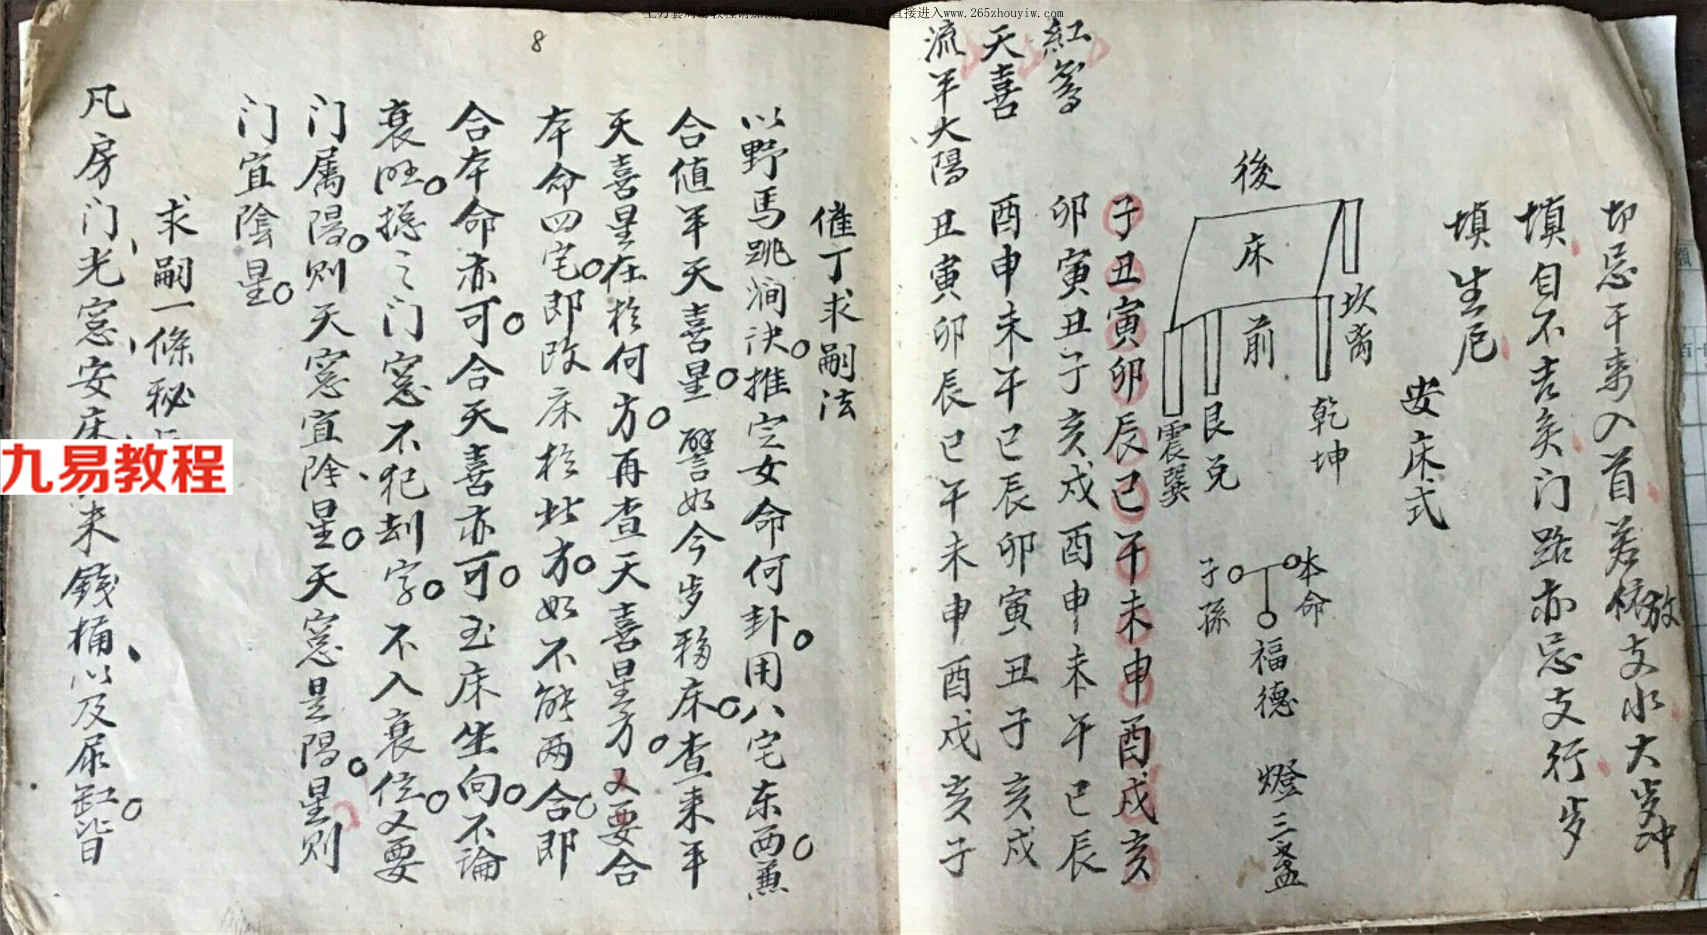 直接进入www.265zhouyiw.com
切忌干来入首若依放支水大步冲
填自不吉矣门路亦忌支行步
填生尼
安床式
後
床
前
坎离
乾坤
艮兑
震巽
本命
子孫
福德
燈三盏
子丑寅卯辰巳午未申酉戌亥
紅鸾
卯寅丑子亥戌酉申未午巳辰
天喜
酉申未午巳辰卯寅丑子亥戌
流年太陽
丑寅卯辰巳午未申酉戌亥子
8
催丁求嗣法
以野馬跳涧决推定女命何卦用八宅东西兼
合值年天喜星譬如今步移床查来年
天喜星在於何方再查天喜星方又要合
本命四宅即改床於此方如不能两合即
合本命亦可合天喜亦可至床坐向不論
衰旺揔之门窓不犯刦字不入衰位又要
门属陽则天窓宜陰星天窓是陽星则
门宜陰星
求嗣一條秘
凡房门光窓安床
来錢桶以及尿缸皆
九易教程